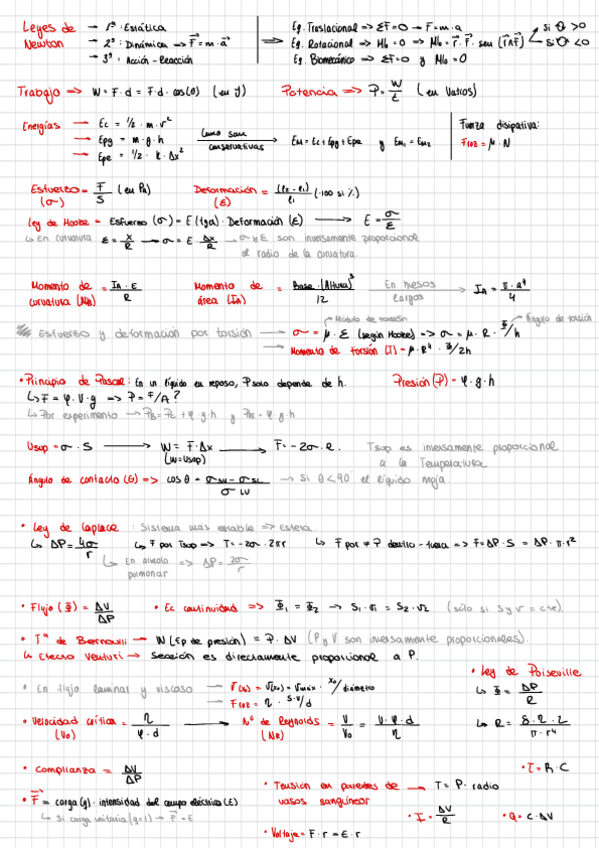 Leyes de Newton → 1ª: Estática
→ 2ª: Dinámica → F = m·a
→ 3ª: Acción - Reacción
Eq. Traslacional => ΣF = 0 → F = m·a
Eq. Rotacional => Mb = 0 => Mb = r · F · sen (r∧F) si θ > 0 si θ < 0
Eq. Biomecánico => ΣF = 0 y Mb = 0
Trabajo => W = F·d = F·d·cos(θ) (en J) Potencia => P = W/t (en Vatios)
Energías → Ec = 1/2 · m · v²
→ Epg = m·g·h
→ Epe = 1/2 · k · Δx²
como son conservativas → Em = Ec + Epg + Epe y Em₁ = Em₂
Fuerza disipativa:
Froz = μ · N
Esfuerzo (σ) = F/S (en Pa) Deformación (ε) = (l₂ - l₁)/l₁ (·100 si %)
Ley de Hooke = Esfuerzo (σ) = E (tga) · Deformación (ε) → E = σ/ε
↳ En curvatura ε = x/R → σ = E · Δx/R → σ y E son inversamente proporcional al radio de la curvatura.
Momento de curvatura (MB) = IA · E / R Momento de área (IA) = Base · (Altura)³ / 12 En huesos largos → IA = π · a⁴ / 4
Módulo de torsión Ángulo de torsión
Esfuerzo y deformación por torsión → σ = μ · ε (según Hooke) => σ = μ · R · Φ/h
→ Momento de torsión (T) = μ · R⁴ · Φ/2h
• Principio de Pascal: En un líquido en reposo, P solo depende de h. Presión (P) = φ · g · h
↳ F = φ · V · g => P = F/A?
↳ Por experimento → PB = PL + φ · g · h
Usup = σ · S → W = F · Δx (W = Usup) → F = -2σ · l. Tsup es inversamente proporcional a la Temperatura
Ángulo de contacto (θ) => cos θ = σSV - σSL / σLV → Si θ < 90 el líquido moja
• Ley de Laplace: Sistema más estable => Esfera.
↳ ΔP = 4σ/r ↳ F por Tsup => T = -2σ · 2πr ↳ F por ≠ P dentro - fuera => F = ΔP · S = ΔP · π · r²
↳ En alveolo pulmonar => ΔP = 2σ/r
• Flujo (Φ) = ΔV/ΔP • Ec continuidad => Φ₁ = Φ₂ → S₁ · v₁ = S₂ · v₂ (sólo si S y v = cte).
• Tª de Bernoulli → W (Ep de presión) = P · ΔV (P y V son inversamente proporcionales).
↳ Efecto Venturi → Sección es directamente proporcional a P.
• En flujo laminar y viscoso → V(x) = V(x₀) = Vmáx · x₀/diámetro
→ Froz = η · S·v/d
• Ley de Poiseville
↳ Φ = ΔP/R
↳ R = 8 · η · L / π · r⁴
• Velocidad crítica (V₀) = η / φ · d → Nº de Reynolds (NR) = V/V₀ = V · φ · d / η
• Complianza = ΔV/ΔP
• F = carga (q) · intensidad del campo eléctrico (E)
↳ Si carga unitaria (q=1) → F = E
• Tensión en paredes de vasos sanguíneos → T = P · radio
• τ = R · C
• I = ΔV/R • Q = C · ΔV
• Voltaje = F · r = E · r